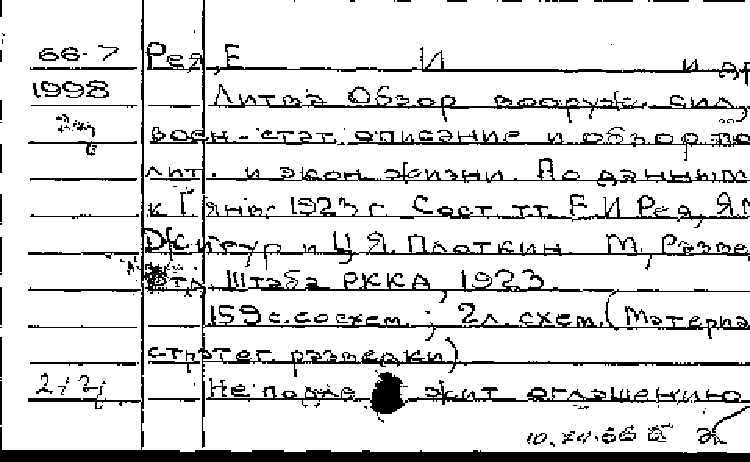 66-7 Рея, Е И и др
1998 Литва Обзор вооруж. сил,
воен.-стат. описание и обзор по
лит. и экон жизни. По данным
к 1 янв. 1923 г. Сост. т.т. Е И Рея, Я.
и Ц Я. Плоткин М, Разве
Отд Штаба РККА, 1923
159 с. со схем.; 2 л. схем. (Материа
стратег разведки)
Не подле жит оглашению
66